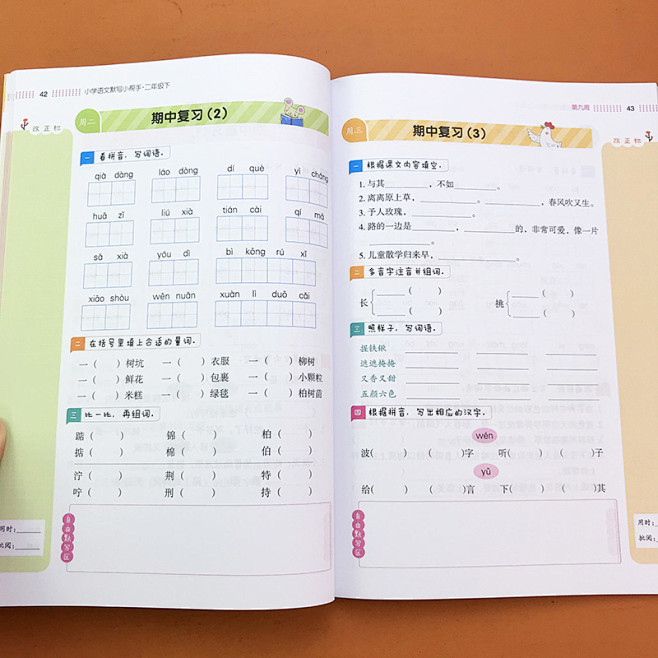 42 小学语文默写小帮手·二年级下
周二 期中复习(2)
改正栏
一 看拼音，写词语。
qiā dàng láo dòng dì què yì cháng
huā zǐ liú xià tián cài qí mǎ
sǎ xià yóu dì bì kōng rú xǐ
xiǎo shòu wēn nuǎn xuàn lì duō cǎi
二 在括号里填上合适的量词。
一( )树坑 一( )衣服 一( )柳树
一( )鲜花 一( )包裹 一( )小颗粒
一( )米糕 一( )绿毯 一( )柏树苗
三 比一比，再组词。
踮( ) 锦( ) 柏( )
掂( ) 棉( ) 伯( )
泞( ) 荆( ) 特( )
咛( ) 刑( ) 持( )
自由默写区
用时：
批阅：
第九周 43
周三 期中复习(3)
改正栏
一 根据课文内容填空。
1. 与其________，不如________。
2. 离离原上草，________。________，春风吹又生。
3. 予人玫瑰，________。
4. 路的一边是________，________的，非常可爱，像一片
________。
5. 儿童散学归来早，________。
二 多音字注音并组词。
长{____( ) ____( ) 挑{____( ) ____( )
三 照样子，写词语。
提铁锹
遮遮掩掩
又香又甜
五颜六色
四 根据拼音，写出相应的汉字。
wén
波( ) ( )字 听( ) ( )子
yǔ
给( ) ( )言 下( ) ( )其
自由默写区
用时：
批阅：